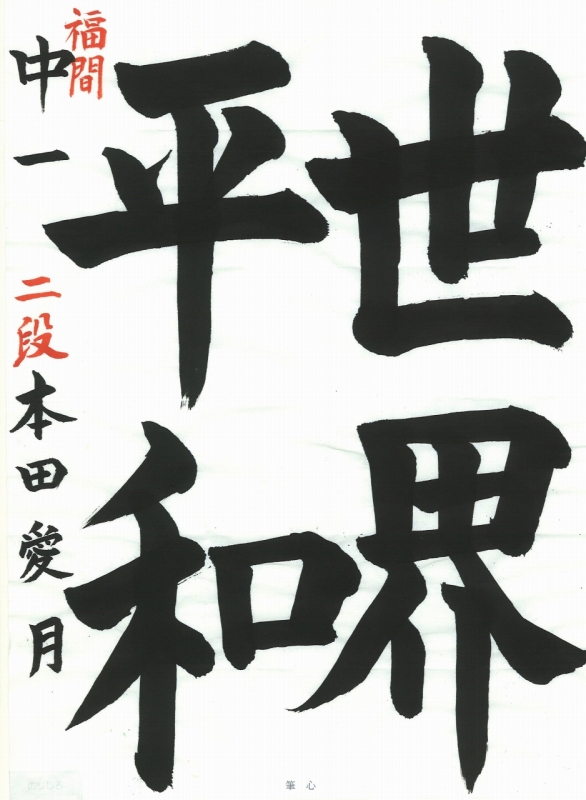 世界
平和
福間
中一 二段 本田愛月
筆心